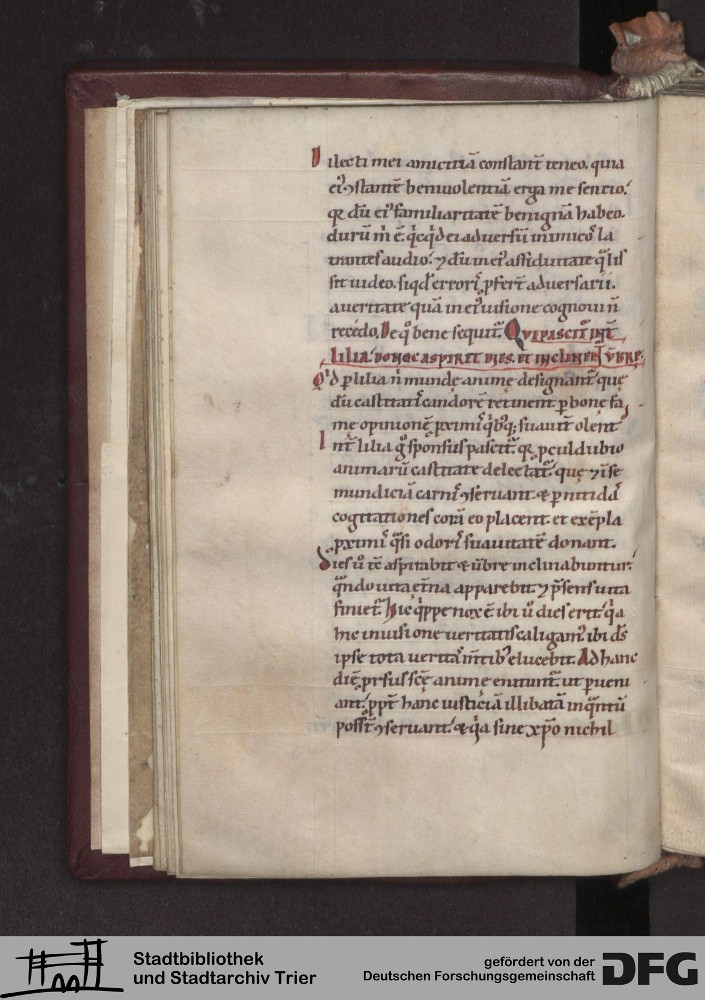 Dilecti mei amicitiā constant̄ teneo. quia
ei᷒ ꝯstantē beniuolentiā erga me sentio.
qꝛ dū ei᷒ familiaritatē benignā habeo.
durū m̄ ē. qͥcqͥd ei adversū inimicoꝝ la
trantes audio. ⁊ dū in ei᷒ assiduitate
sit video. siqͥd erroris ꝓfert̄ adversarii.
a veritate quā in ei᷒ visione cognovi n̄
recedo. De qͦ bene sequit᷑. QVI PASCIT᷑ INT̄
LILIA. DONEC ASPIRET DIES. ET INCLINENT᷑ VMBRE.
Qͥd ꝑ lilia n̄ mundę animę designant᷑ quę
dū castitatis candorē retinent. ꝑ bonę fa
me opinionē ꝓximis qͥbꝰqꝫ suavit̄ olent.
Int̄ lilia gͦ sponsus pascit᷑. qꝛ ꝓculdubio
animarū castitate delectat᷑. quę ⁊ in se
mundiciā carnis ꝯservant. & ꝑ nitidas
cogitationes corā eo placent. et exēpla
ꝓximis qͣsi odoris suavitatē donant.
Dies ū tc̄ aspirabit & ūbre inclinabuntur.
qͣndo vita ęt̄na apparebit. ⁊ p̄sens vita
finiet᷑. Hic qͥppe nox ē. ibi ū dies erit. qͥa
hic in visione veritatis caligam᷒. ibi d̄s
ipse tota veritas m̄tibꝰ elucebit. Ad hanc
diē ꝓrsus scē animę enitunt᷑. ut ꝑveni
ant. ꝓpt̄ hanc iusticiā illibatā inqͣntū
poss̄t ꝯservant. & qͥa sine xp̄o nichil
Stadtbibliothek
und Stadtarchiv Trier
gefördert von der
Deutschen Forschungsgemeinschaft
DFG